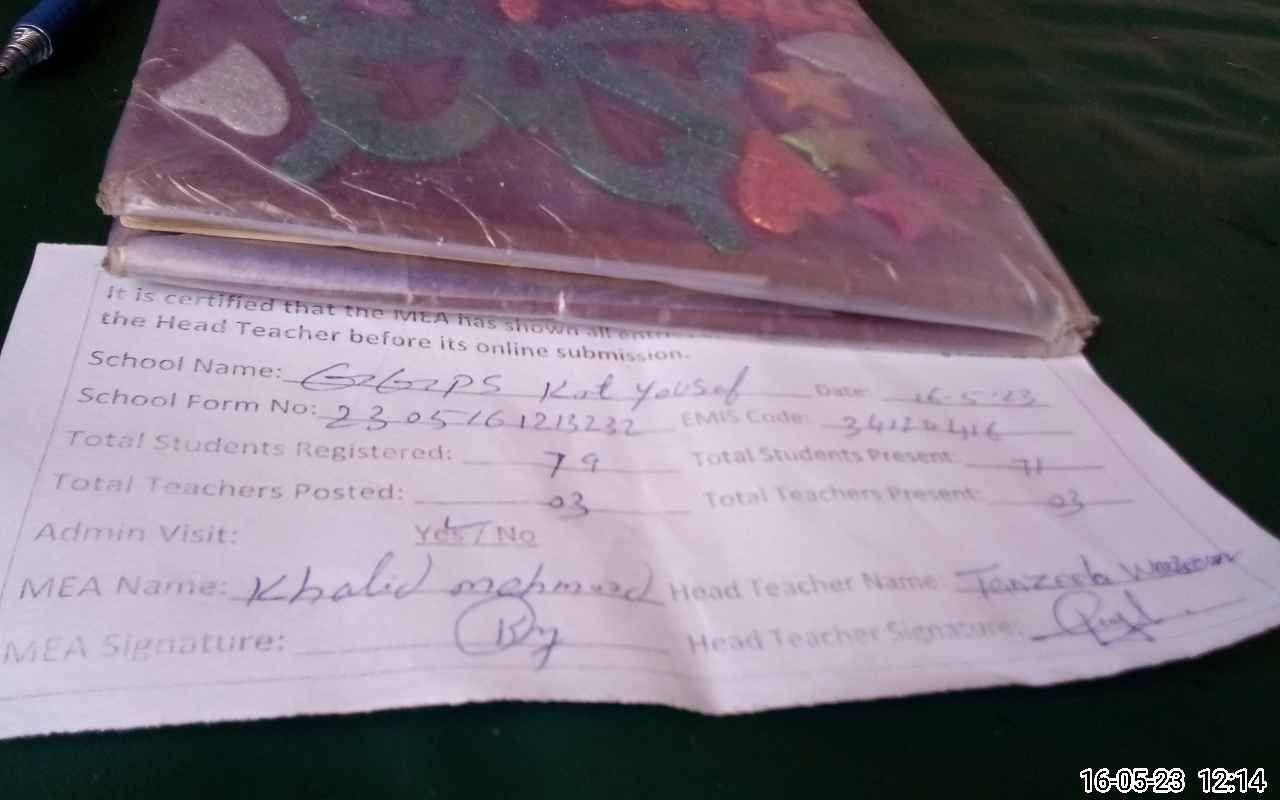 It is certified that the MEA has shown all
the Head Teacher before its online submission.
School Name: GGPS Kot Yousaf Date: 16-5-23
School Form No: 2305161213232 EMIS Code:
Total Students Registered: 79 Total Students Present: 71
Total Teachers Posted: 03 Total Teachers Present: 03
Admin Visit: Yes / No
MEA Name: Khalid mehmood Head Teacher Name:
MEA Signature: Head Teacher Signature:
16-05-23 12:14